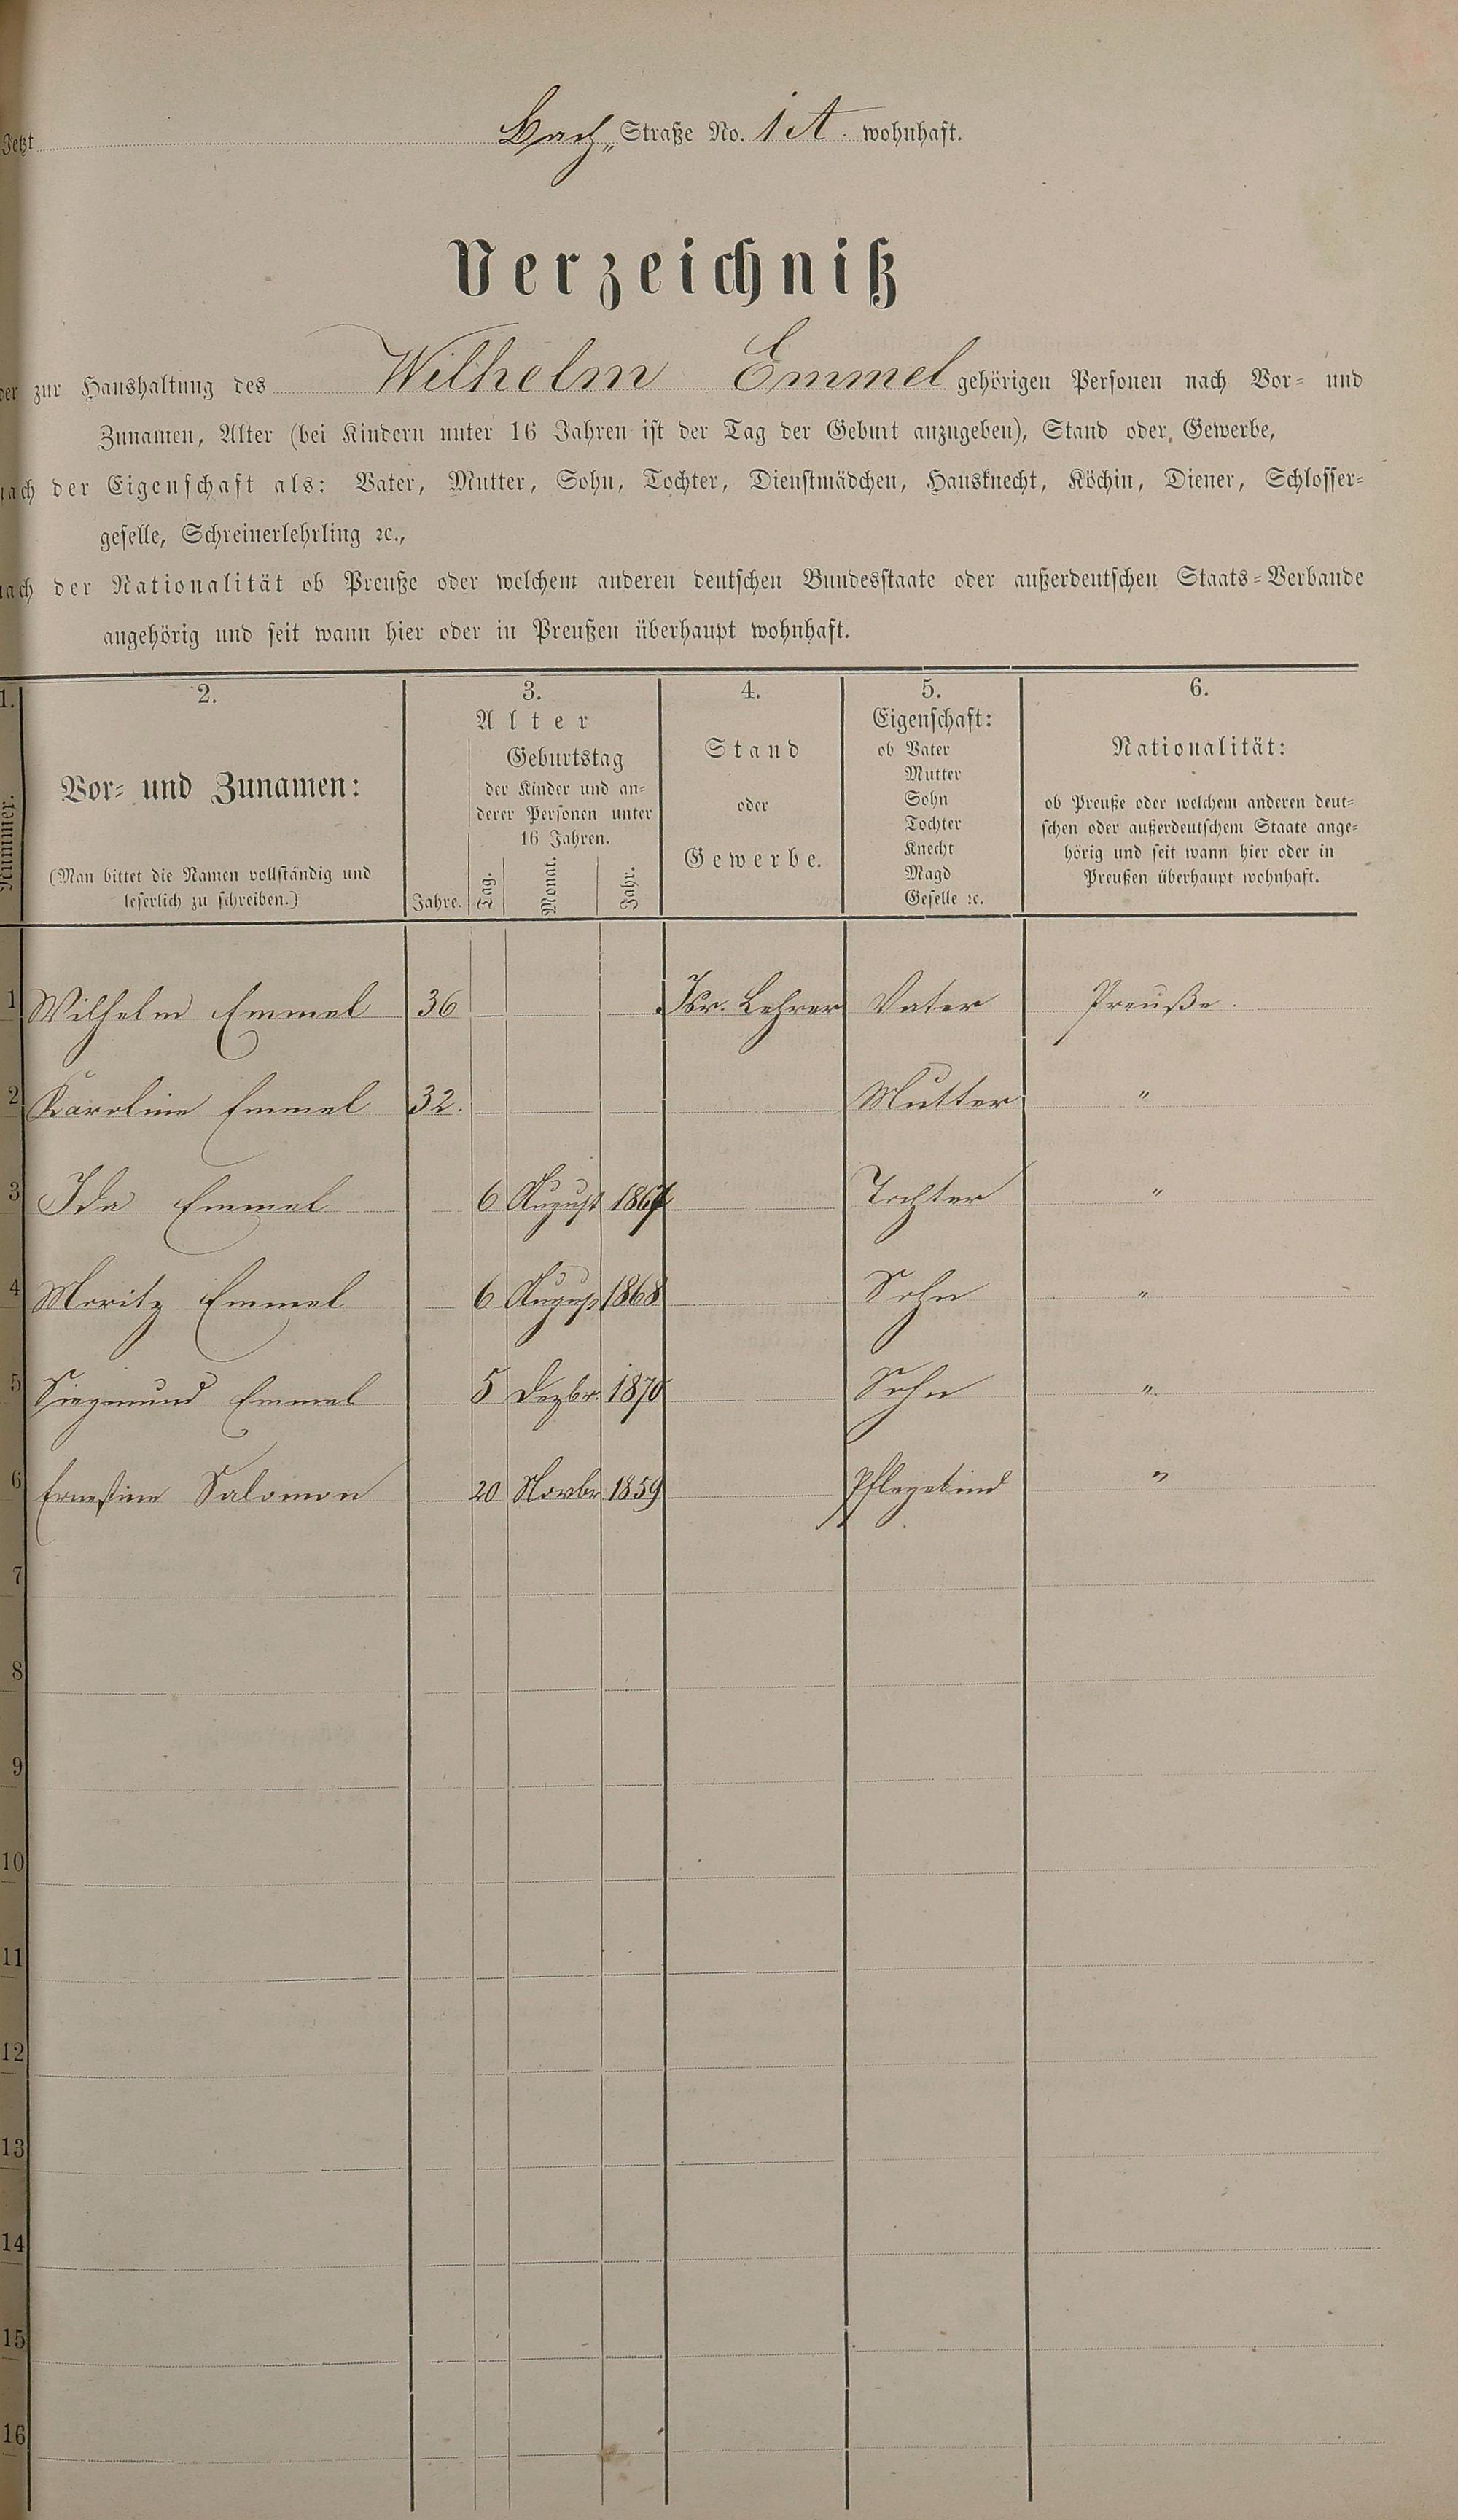 Jetzt Bach Straße No. 1 A. wohnhaft.
Verzeichniß
der zur Haushaltung des Wilhelm Emmel gehörigen Personen nach Vor- und
Zunamen, Alter (bei Kindern unter 16 Jahren ist der Tag der Geburt anzugeben), Stand oder Gewerbe,
nach der Eigenschaft als: Vater, Mutter, Sohn, Tochter, Dienstmädchen, Hausknecht, Köchin, Diener, Schlosser-
geselle, Schreinerlehrling ꝛc.,
nach der Nationalität ob Preuße oder welchem anderen deutschen Bundesstaate oder außerdeutschen Staats-Verbande
angehörig und seit wann hier oder in Preußen überhaupt wohnhaft.
1. 2. 3. 4. 5. 6.
Nummer.
Vor- und Zunamen:
(Man bittet die Namen vollständig und
leserlich zu schreiben.)
Alter
Jahre.
Geburtstag
der Kinder und an-
derer Personen unter
16 Jahren.
Tag. Monat. Jahr.
Stand
oder
Gewerbe.
Eigenschaft:
ob Vater
Mutter
Sohn
Tochter
Knecht
Magd
Geselle ꝛc.
Nationalität:
ob Preuße oder welchem anderen deut-
schen oder außerdeutschem Staate ange-
hörig und seit wann hier oder in
Preußen überhaupt wohnhaft.
1 Wilhelm Emmel 36 Isr. Lehrer Vater Preuße.
2 Karoline Emmel 32. Mutter "
3 Ida Emmel 6 August 1867 Tochter "
4 Moritz Emmel 6 August 1868 Sohn "
5 Siegmund Emmel 5 Dezbr. 1870 Sohn "
6 Ernestine Salomon 20 Novbr 1859 Pflegekind "
7
8
9
10
11
12
13
14
15
16